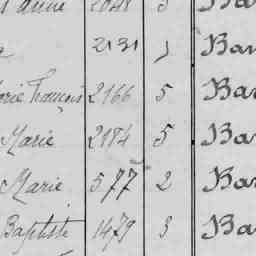 anne 2048 5 Bar
e 2131 Bar
Marie François 2166 5 Bar
Marie 2184 5 Bar
Marie 577 2 Bar
Baptiste 1479 3 Bar